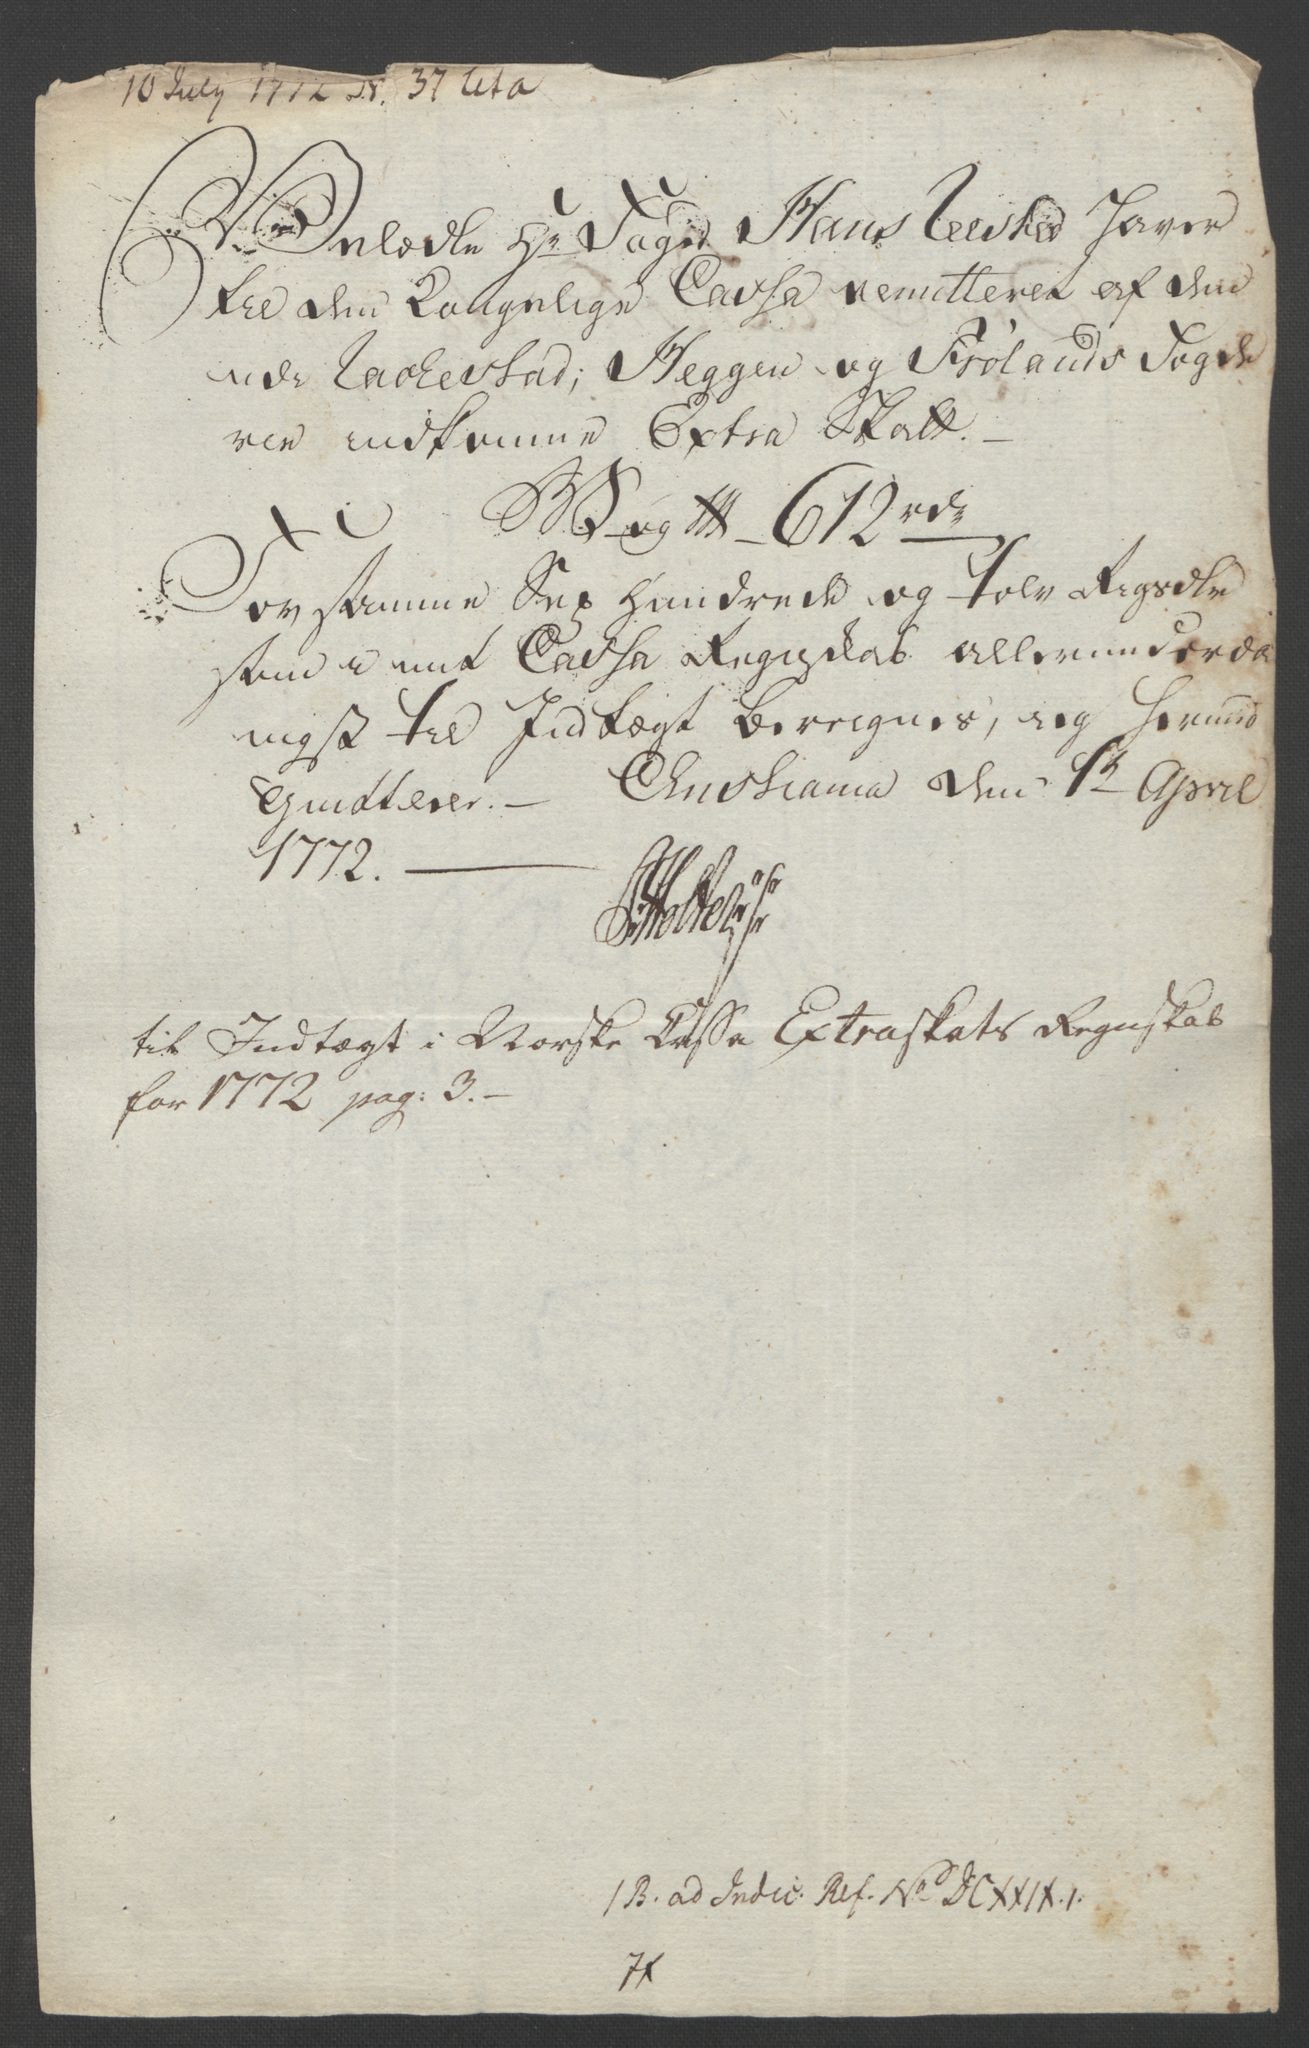 10 July 1772 N. 37
Velædle Hr Foged Hans haver
til den Kongelige Cassa remitteret af den
udi Rachestad, Heggen og Frølands Fogde
rie indkomne Extra Skatt. —
612 rdr
Forstamme Sex Hundrede og tolv Rigsdlr
som i mit Cassa Regnskab allerunderda
nigst til Indtægt bereignes, ieg herved
Qvitterer. — Christiania den 1te April
1772. —
til Indtægt i Norske Cassa Extraskats Regnskab
for 1772 pag: 3. —
/B. ad Indic. Ref. No DCXXIX./.